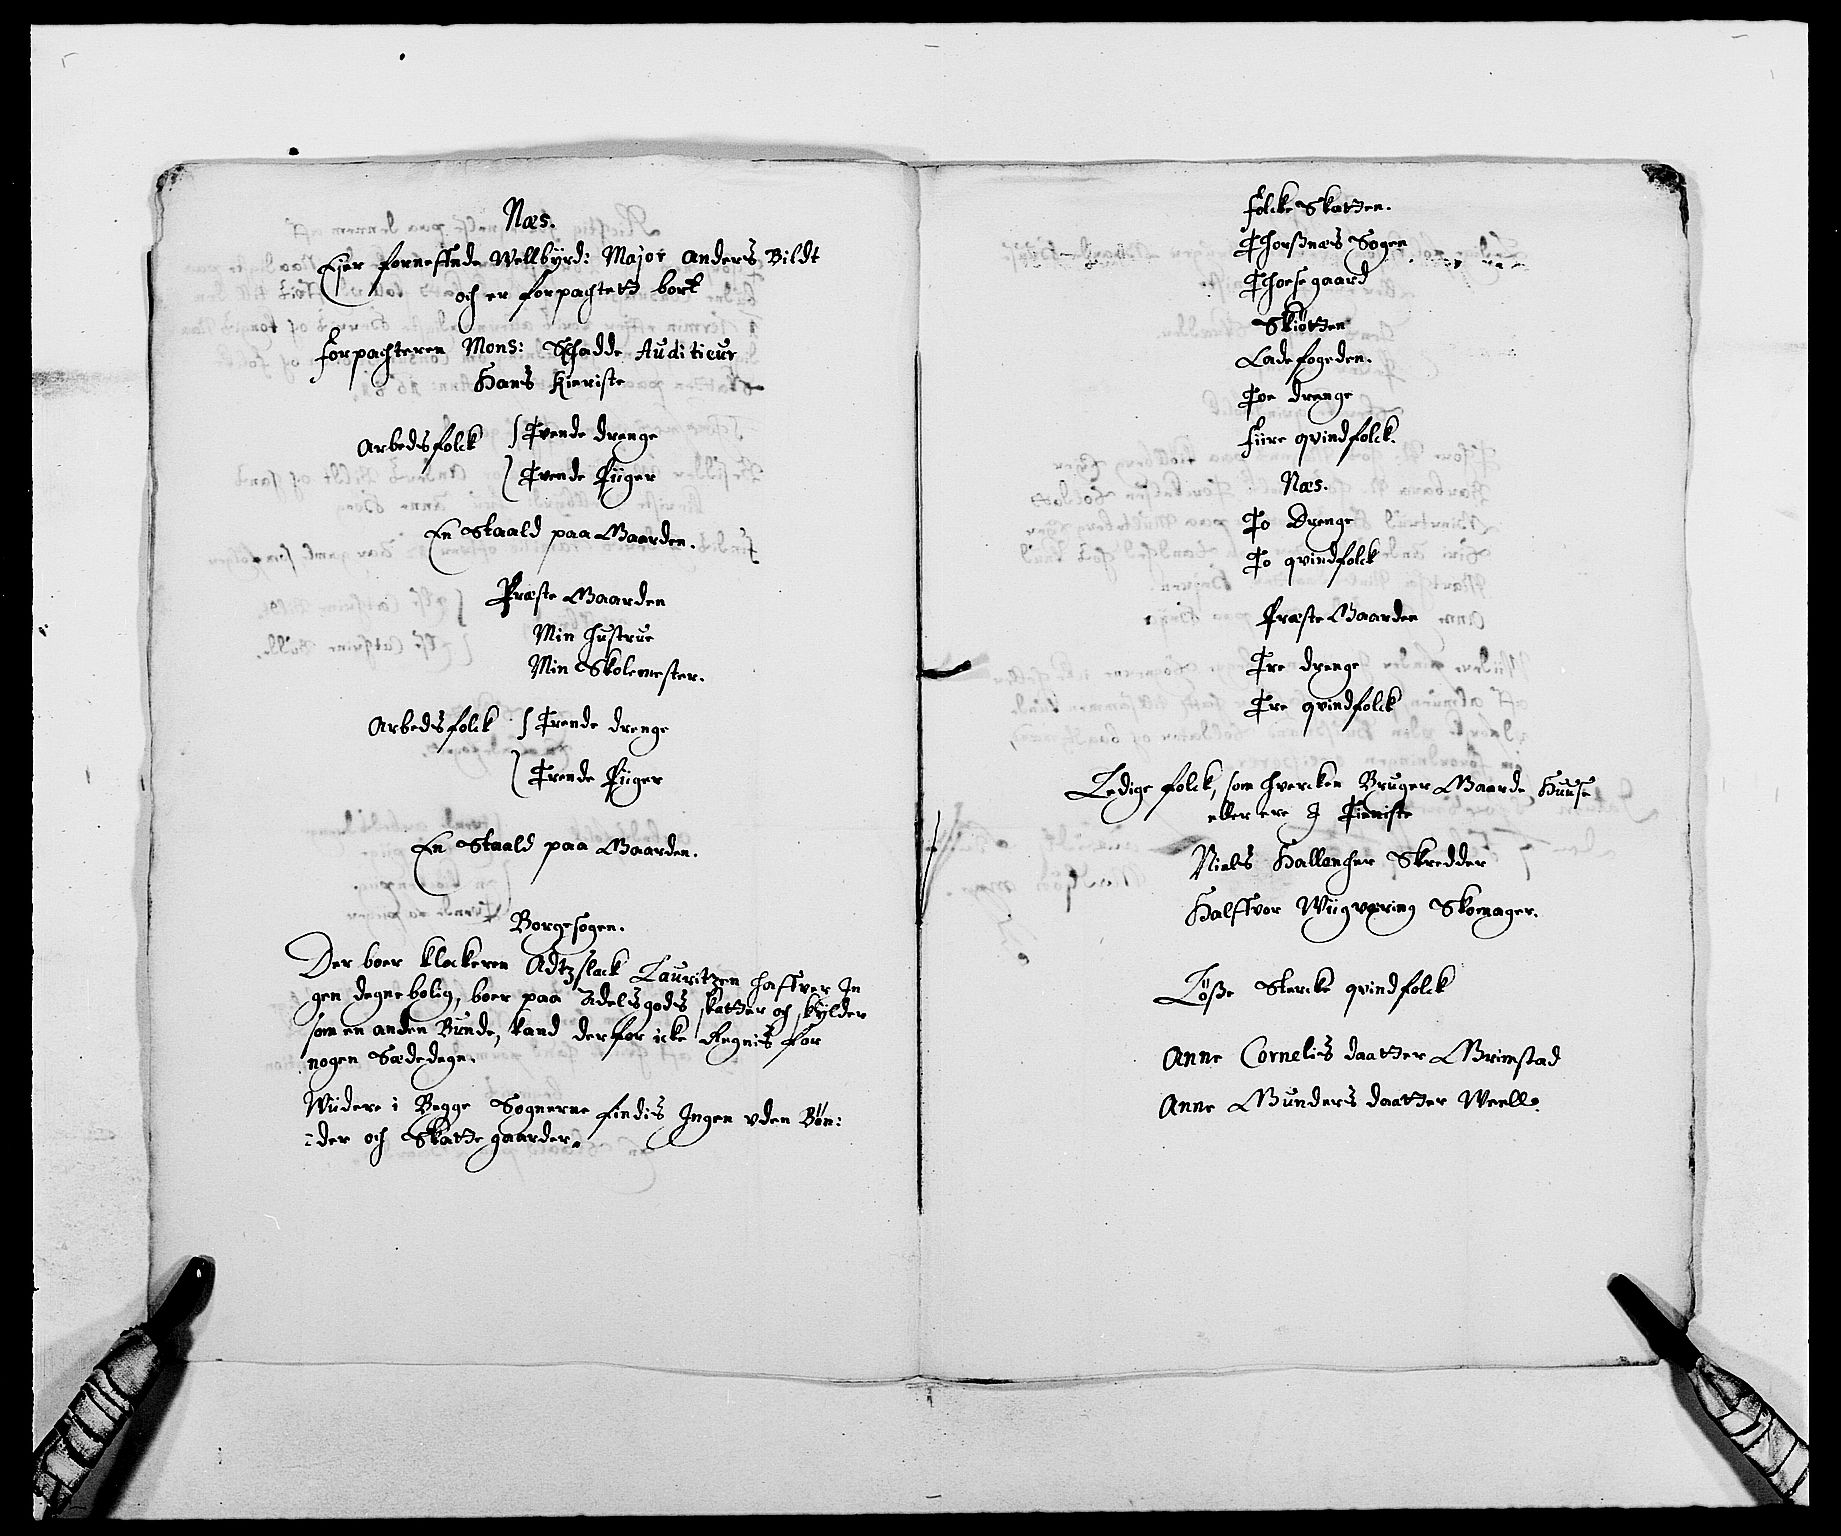 Næs.
Ejer forneffnde Wellbyrd: Major Anders Bildt
och er forpachtett bort
Forpachteren Mons: Schadde Auditieur
Hans Kieriste
Arbedsfolck Tvende drenge
Tvende Piiger
En Staald paa Gaarden.
Præste Gaarden
Min hustrue
Min Skolemester.
Arbedsfolck Trende drenge
Trende Piiger
En Staald paa Gaarden.
Borgesogen.
Der boer klockeren Lauritzen haffver In
gen degnebolig, boer paa Adelsgods skatter och skylder
som en anden Bunde, kand derfor icke Regnis for
nogen Sædedegn.
Wiidere i Begge Sognerne findis Ingen uden Bøn:
=der och Skatte gaarder.
Folcke Skatten.
Thorsnæs Sogen
Thorsegaard
Skiøtten
Ladefogeden.
Toe drenge
Fiire qvindfolck.
Næs.
To Drenge
To qvindfolck
Præste Gaarden
Tre drenge
Tre qvindfolck
Ledige folck, som hvercken Bruger Gaarde Huuse
eller ere I Tieniste
Niels Hallencher Skredder
Halffvor Wiigværing Skomager.
Løsse Stercke qvindfolck
Anne Cornelis daatter Grimstad
Anne Gunders daatter Welle.